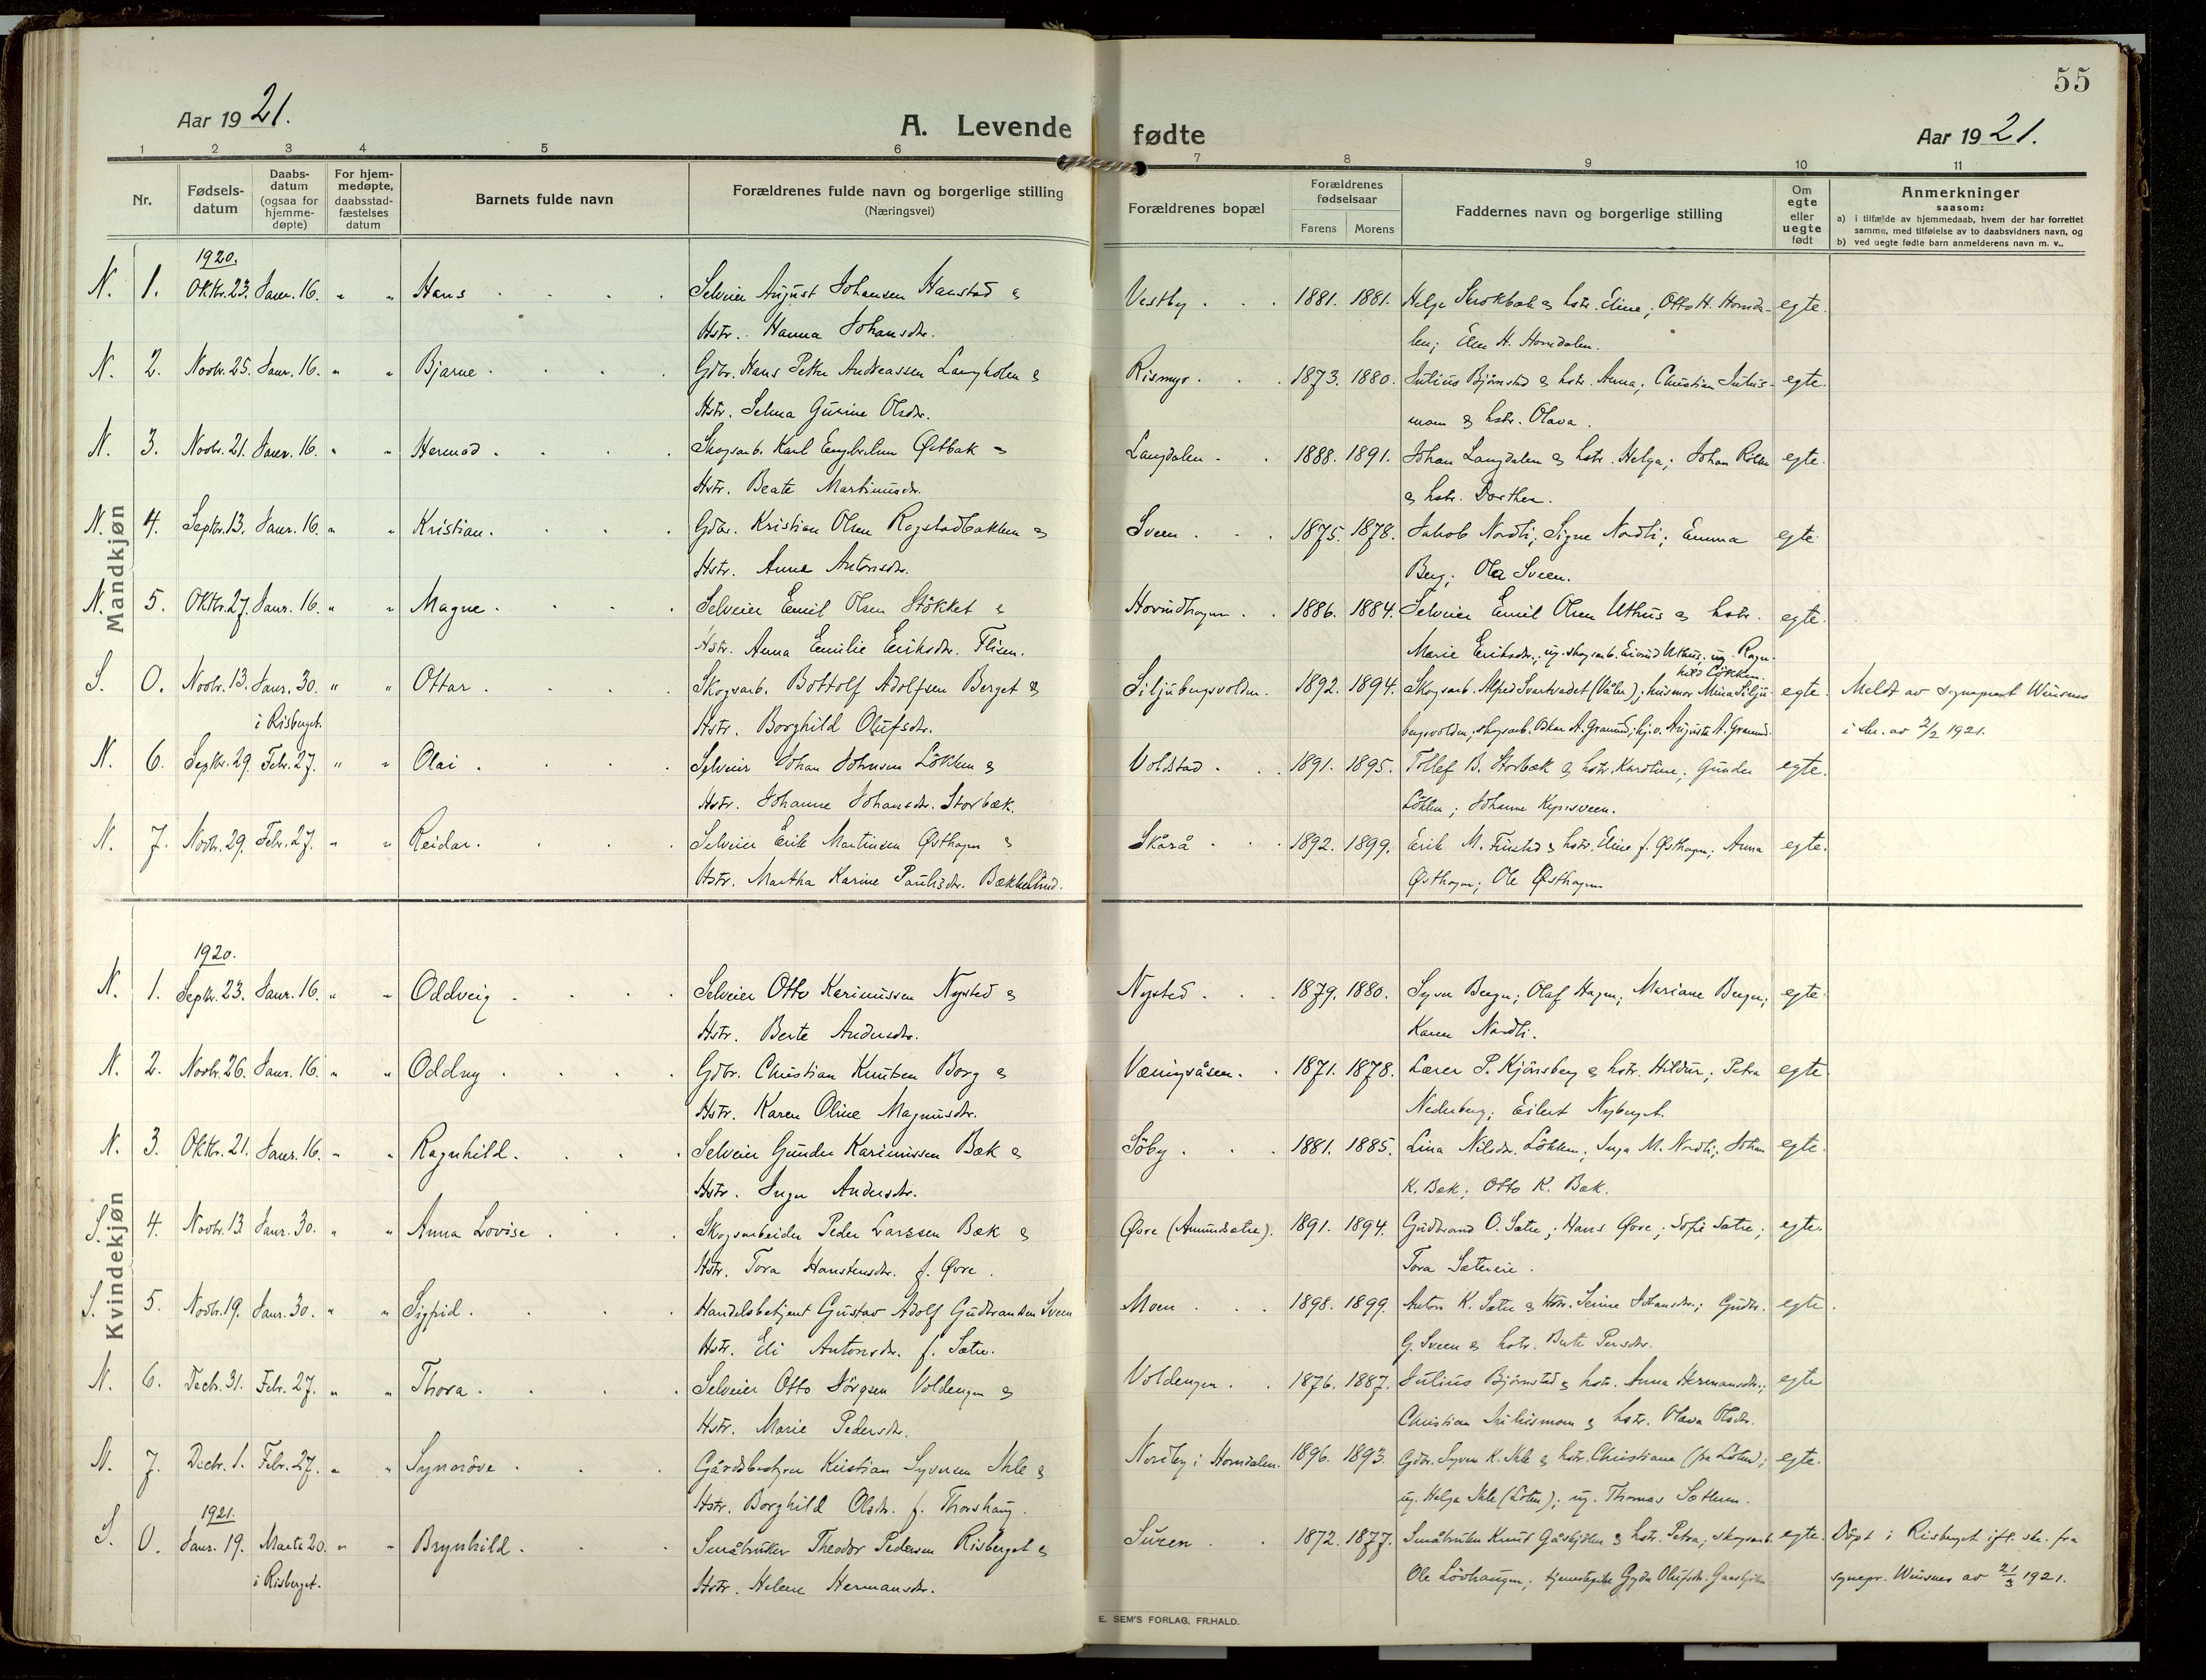 55
Aar 1921.
A. Levende fødte
Aar 1921.
1 2 3 4 5 6 7 8 9 10 11
Nr.
Fødsels-
datum
Daabs-
datum
(ogsaa for
hjemme-
døpte)
For hjem-
medøpte,
daabsstad-
fæstelses
datum
Barnets fulde navn
Forældrenes fulde navn og borgerlige stilling
(Næringsvei)
Forældrenes bopæl
Forældrenes
fødselsaar
Farens Morens
Faddernes navn og borgerlige stilling
Om
egte
eller
uegte
født
Anmerkninger
saasom:
a) i tilfælde av hjemmedaab, hvem der har forrettet
samme, med tilføielse av to daabsvidners navn, og
b) ved uegte fødte barn anmelderens navn m. v..
Mandkjøn
1920.
N. 1. Oktr. 23. Janr. 16. " " Hans . . . . Selveier August Johansen Hanstad & Vestby . . . 1881. 1881. Helge & hstr. Eline; Otto H. Hornda- egte.
Hstr. Hanna Johansdr. len; Elen H. Horndalen.
N. 2. Novbr. 25. Janr. 16. " " Bjarne . . . . Gdbr. Hans Petter Andreassen Langholen & Rismyr . . . 1873. 1880. Julius Bjørnstad & hstr. Anna; Christian Julius- egte.
Hstr. Selma Gusine Olsdr. mom & hstr. Olava.
N. 3. Novbr. 21. Janr. 16. " " Hermod . . . . Skogsarb. Karl Engebretsen Østbak & Langdalen . . 1888. 1891. Johan Langdalen & hstr. Helga; Johan egte.
Hstr. Beate Martinusdr. & hstr. Dorthea.
N. 4. Septbr. 13. Janr. 16. " " Kristian . . . Gdbr. Kristian Olsen Rogstadbakken & Sveen . . . 1875. 1878. Jakob Nordli; Signe Nordli; Emma egte.
Hstr. Anna Antonsdr. Berg; Ola Sveen.
N. 5. Oktr. 27. Janr. 16. " " Magne . . . . Selveier Emil Olsen Stökket & Hovindhagen . . 1886. 1884. Selveier Emil Olsen Uthus & hstr. egte.
Hstr. Anna Emilie Eriksdr. Flisen. Marie Eriksdr.; ug. skogsarb. Eivind Uthus; ug. Ragn-
hild Løkken.
S. 0. Novbr. 13. Janr. 30. " " Ottar . . . . Skogsarb. Bottolf Adolfsen Berget & Siljubergsvolden . 1892. 1894. Skogsarb. Alfred Svartvadet (Våler); husmor Mina Silju- egte. Meldt av sogneprest Winsnes
i Risberget. Hstr. Borghild Olufsdr. bergsvolden; skogsarb. Oskar A. Gramund; Augusta A. Gramund. i skr. av 2/2 1921.
N. 6. Septbr. 29. Febr. 27. " " Olai . . . . Selveier Johan Johnsen Lökken & Voldstad . . . 1891. 1895. Tollef B. Storbæk & hstr. Karoline; Gunder egte.
Hstr. Johanne Johansdr. Storbæk. Lökken; Johanne
N. 7. Novbr. 29. Febr. 27. " " Reidar . . . . Selveier Erik Martinsen Østhagen & Skårå . . . 1892. 1899. Erik M. & hstr. Eline f. Østhagen; Anna egte.
Hstr. Martha Karine Paulsdr. Bækkelund. Østhagen; Ole Østhagen
Kvindekjøn
1920.
N. 1. Septr. 23. Janr. 16. " " Oddveig . . . . Selveier Otto Karinussen Nysted & Nysted . . . 1879. 1880. Syver Bergn; Olaf Hagen; Mariane Bergn; egte.
Hstr. Berte Andersdr. Karen Nordli.
N. 2. Novbr. 26. Janr. 16. " " Oddny . . . . Gdbr. Christian Knutsen Borg & Væningsåsen . . 1871. 1878. Lærer P. Kjönsberg & hstr. Hildur; Petra egte.
Hstr. Karen Oline Magnusdr. Nederberg; Eilert Nyberget.
N. 3. Oktr. 21. Janr. 16. " " Ragnhild . . . . Selveier Gunder Karinussen Bæk & Söby . . . 1881. 1885. Lina Nilsdr. Lökken; Inga M. Nordli; Johan egte.
Hstr. Inger Andersdr. K. Bæk; Otto K. Bæk.
S. 4. Novbr. 13 Janr. 30. " " Anna Lovise . . . Skogsarbeider Peder Larssen Bæk & Øvre (Amundsætre). 1891. 1894. Gudbrand O. Sætre; Hans Øvre; Sofie Sætre; egte.
Hstr. Tora Hanstensdr. f. Øvre. Tora Sætereie.
S. 5. Novbr. 19. Janr. 30. " " Sigfrid . . . . Handelsbetjent Gustav Adolf Gudbrandsen Sveen Moen . . . 1898. 1899. Anton K. Sætre & Hstr. Serine Johansdr.; Gudbr. egte.
Hstr. Eli Antonsdr. f. Sætre. G. Sveen & hstr. Berte Persdr.
N. 6. Decbr. 31. Febr. 27. " " Thora . . . . Selveier Otto Jörgsen Voldengen & Voldengen . . 1876. 1887. Julius Bjørnstad & hstr. Anna Hermansdr.; egte
Hstr. Marie Pedersdr. Christian Juliusmom & hstr. Olava Olsdr.
N. 7. Decbr. 1. Febr. 27. " " Synnöve . . . Gårdsbestyrer Kristian Syversen Skle & Nordby i Horndalen. 1896. 1893. Gdbr. Syver K. Skle & hstr. Christiane (fra Löten); egte.
Hstr. Borghild Olsdr. f. Thorshaug. ug. Helga Skle (Löten); ug. Thomas Sæthren.
1921.
S. 0. Janr. 19. Marts 20. " " Brynhild . . . Småbruker Theodor Pedersen Risberget & Svren . . 1872. 1877. Småbruker Knut Gåskjölen & hstr. Petra; skogsarb. egte. Döpt i Risberget ifl. skr. fra
i Risberget. Hstr. Helene Hermansdr. Ole Lövhaugen; tjenestepike Gyda Olufsdr. Gaaskjölen sognepr. Winsnes av 21/3 1921.
E. SEM'S FORLAG, FR.HALD.